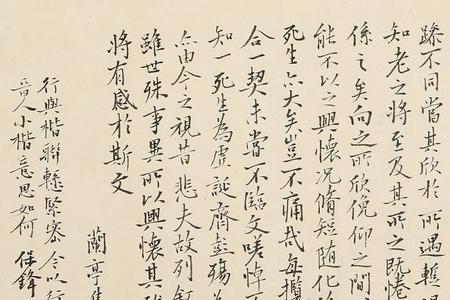 躁不同當其欣於所遇蹔
知老之將至及其所之既惓
係之矣向之所欣俛仰之間
能不以之興懷况脩短随化
死生亦大矣豈不痛哉每攬
合一契未嘗不臨文嗟悼
知一死生為虛誕齊彭殤
亦由今之視昔悲夫故列
雖世殊事異所以興懷其
將有感於斯文
蘭亭
行與楷聯繫緊密今以行
晉人小楷意思如何 保鋒